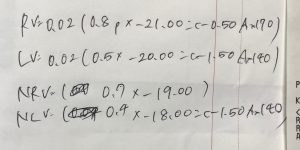 RV= 0.02 (0.8 p x -21.00 = c-0.50 Ax170)
LV= 0.02 (0.5 x -20.00 = c-1.50 Ax140)
NRV= ( 0.7 x -19.00 )
NLV= ( 0.4 x -18.00 = c-1.50 Ax140)